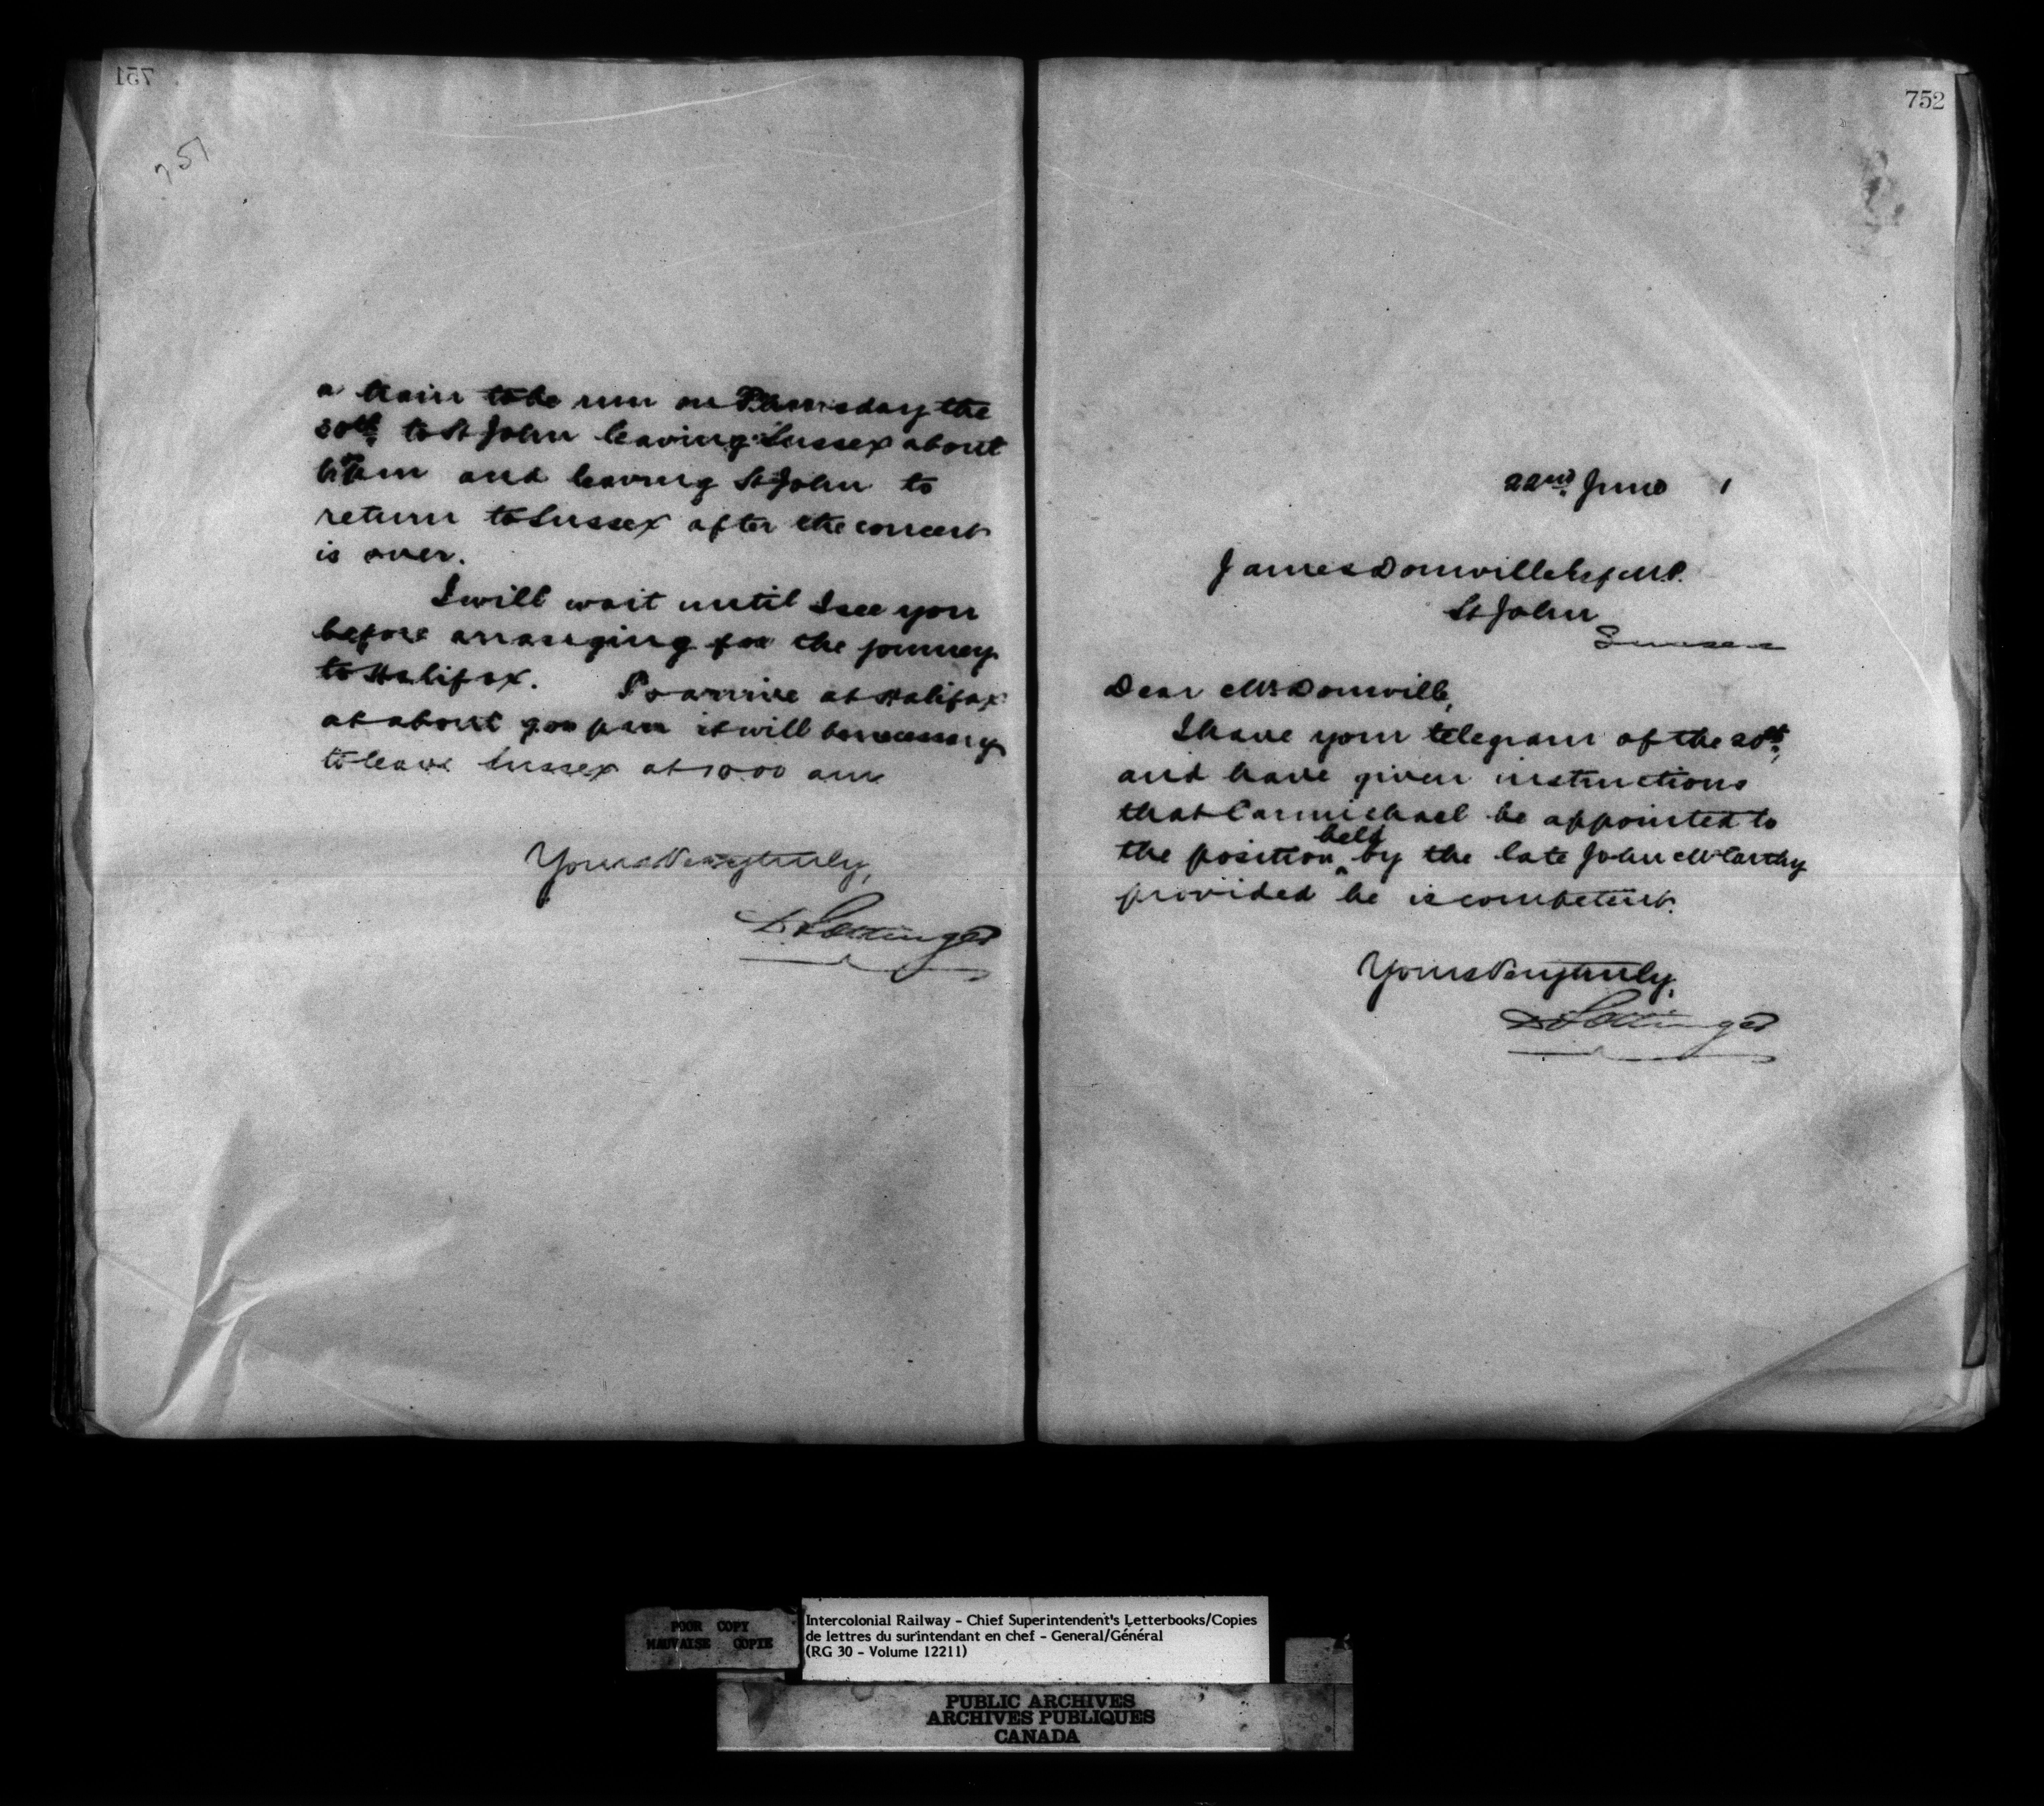 751
751
a train to be run on Thursday the
30th to St John leaving Sussex about
and leaving St John to
return to Sussex after the concert
is over.
I will wait until I see you
before arranging for the journey
to Halifax. To arrive at Halifax
at about 9 00 pm it will be necessary
to leave Sussex at 10 00 am
Yours Very truly,
D Pottinger
752
22nd June 1
James Domville Esq M.P.
St John
Dear Mr Domville,
I have your telegram of the 20th,
and have given instructions
that Carmichael be appointed to
the position held by the late John McCarthy
provided he is competent.
Yours Very truly,
D Pottinger
POOR COPY
MAUVAISE COPIE
Intercolonial Railway - Chief Superintendent's Letterbooks/Copies
de lettres du surintendant en chef - General/Général
(RG 30 - Volume 12211)
PUBLIC ARCHIVES
ARCHIVES PUBLIQUES
CANADA